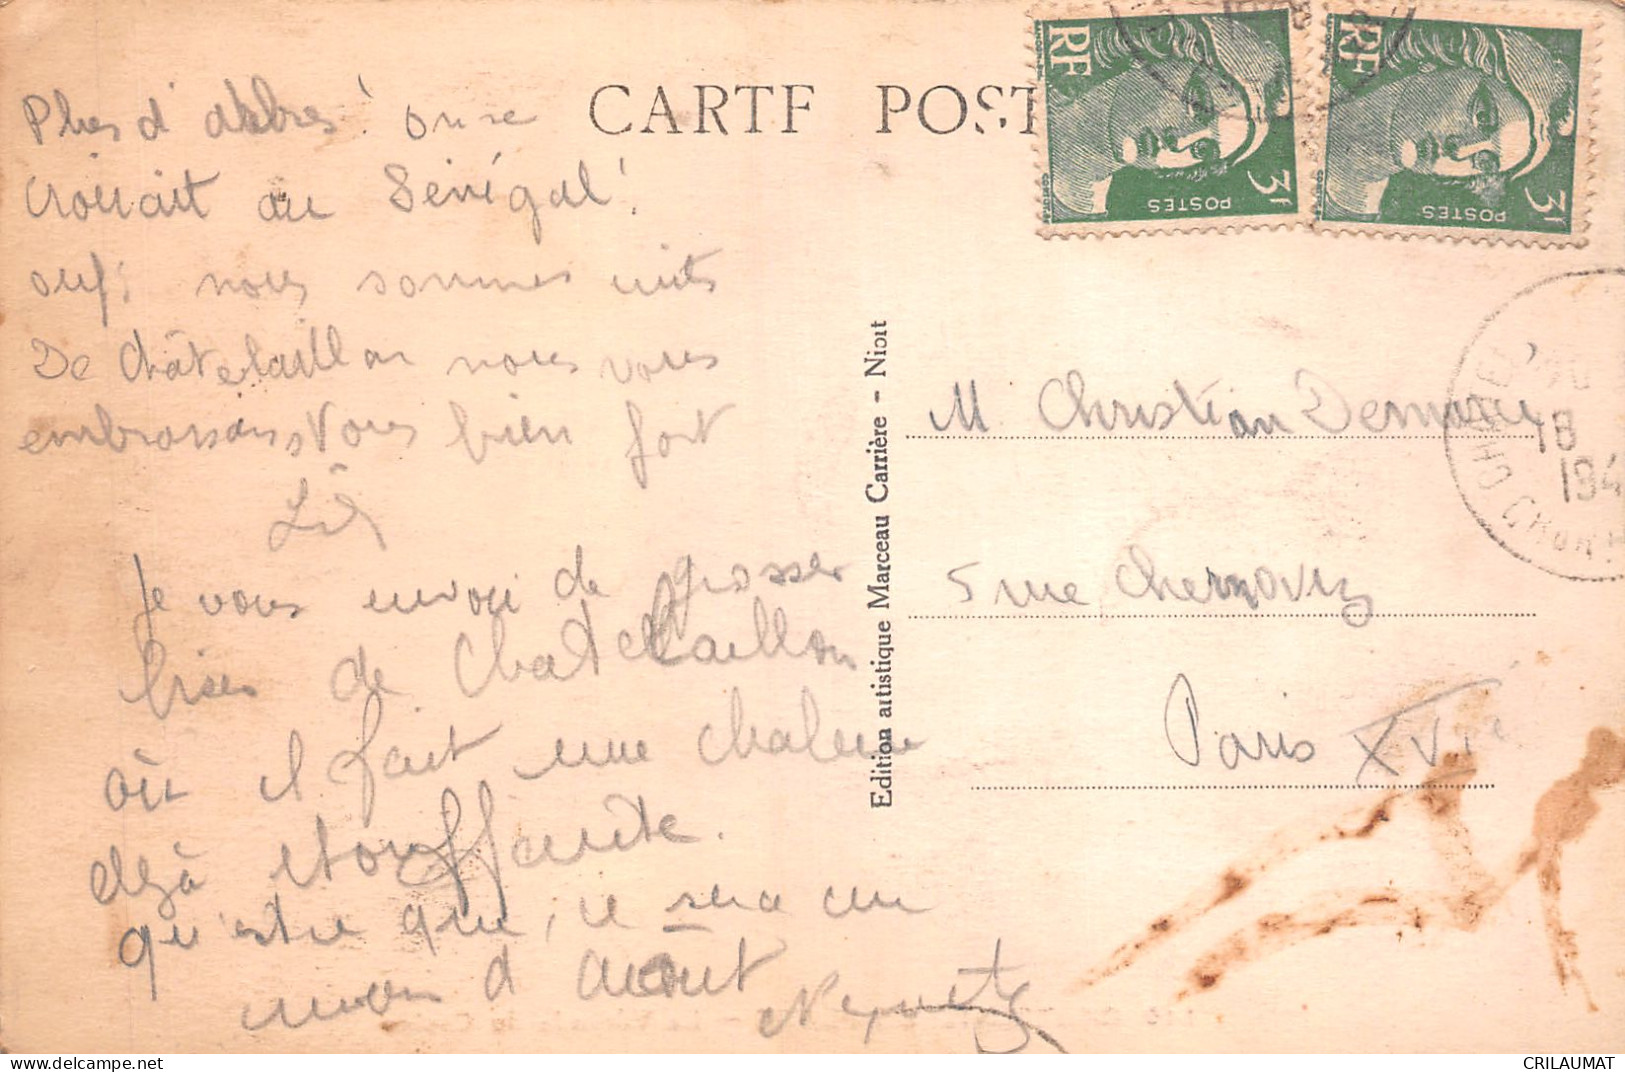 CARTE POST
RF
POSTES
3F
RF
POSTES
3F
Plus d' arbres! on se
croirait au Sénégal!
ouf! nous sommes cuits
De Châtelaillon nous vous
embrassons Vous bien fort
Je vous envoie de grosses
bises de Chatelaillon
où il fait une chaleur
déjà étouffante.
qu'est ce que ce sera au
mois d' Août
Edition artistique Marceau Carrière - Niort
M. Christian
5 rue Chernoviz
Paris XVIe
18
194
CRILAUMAT